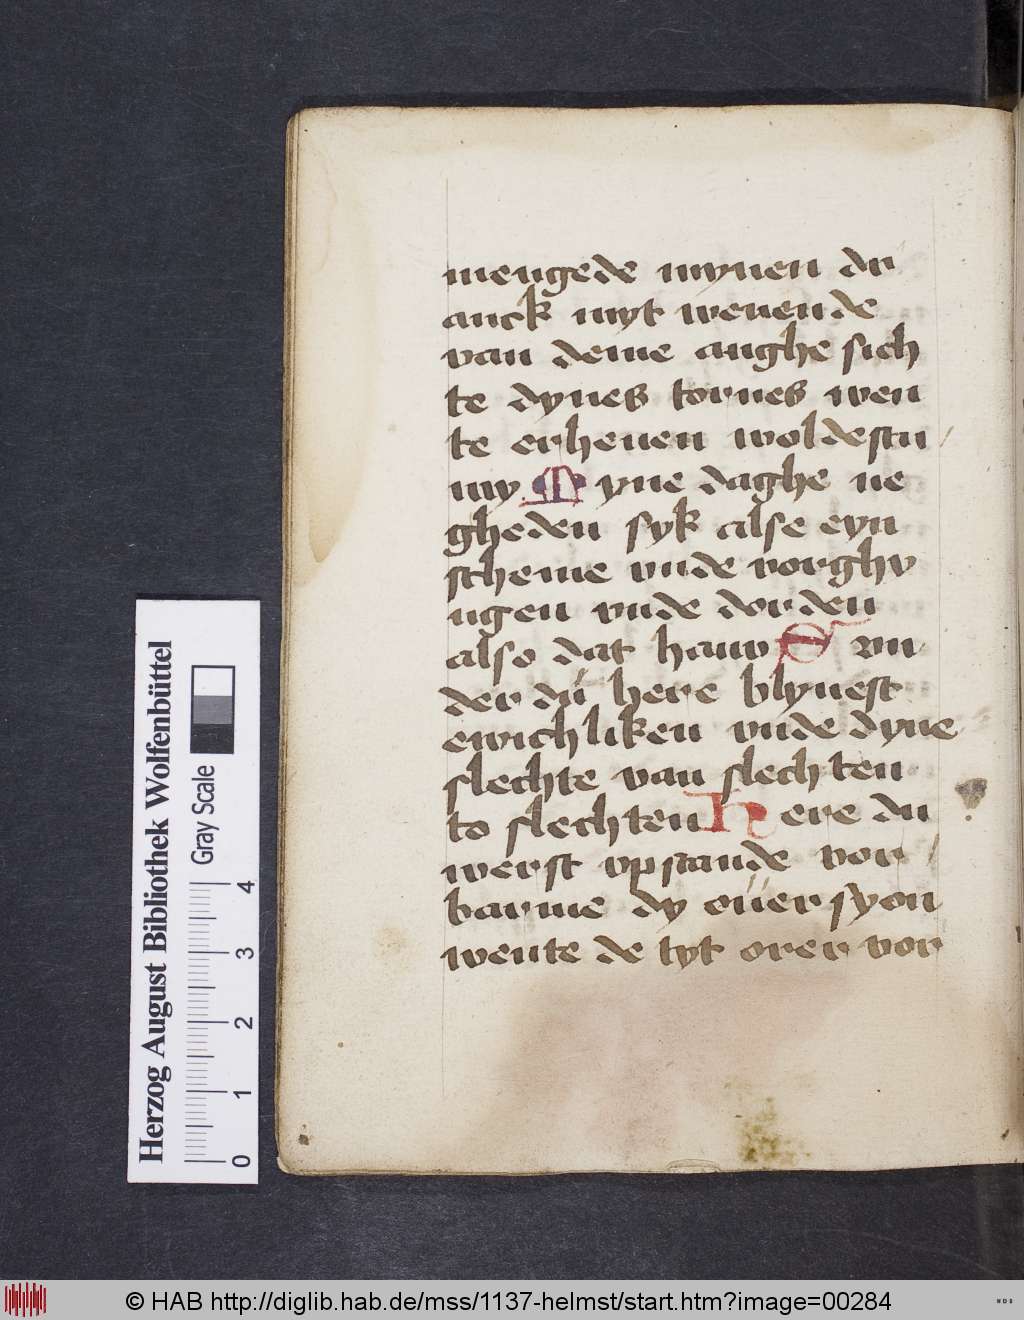 mengede mynen dr
anck myt wenende
van deme anghe sich
te dynes tornes wen
te erheuen woldestu
my Myne daghe ne
gheden syk alse eyn
scheme vnde vorghv
ngen vnde dorden
also dat hauw Svn
der dů here blyuest
ewichliken vnde dyne
slechte van slechten
to slechten Here du
werst vpstande vor
barme dy ouer syon
wente de tyt orer vor
Herzog August Bibliothek Wolfenbüttel
Gray Scale
0 1 2 3 4
© HAB http://diglib.hab.de/mss/1137-helmst/start.htm?image=00284